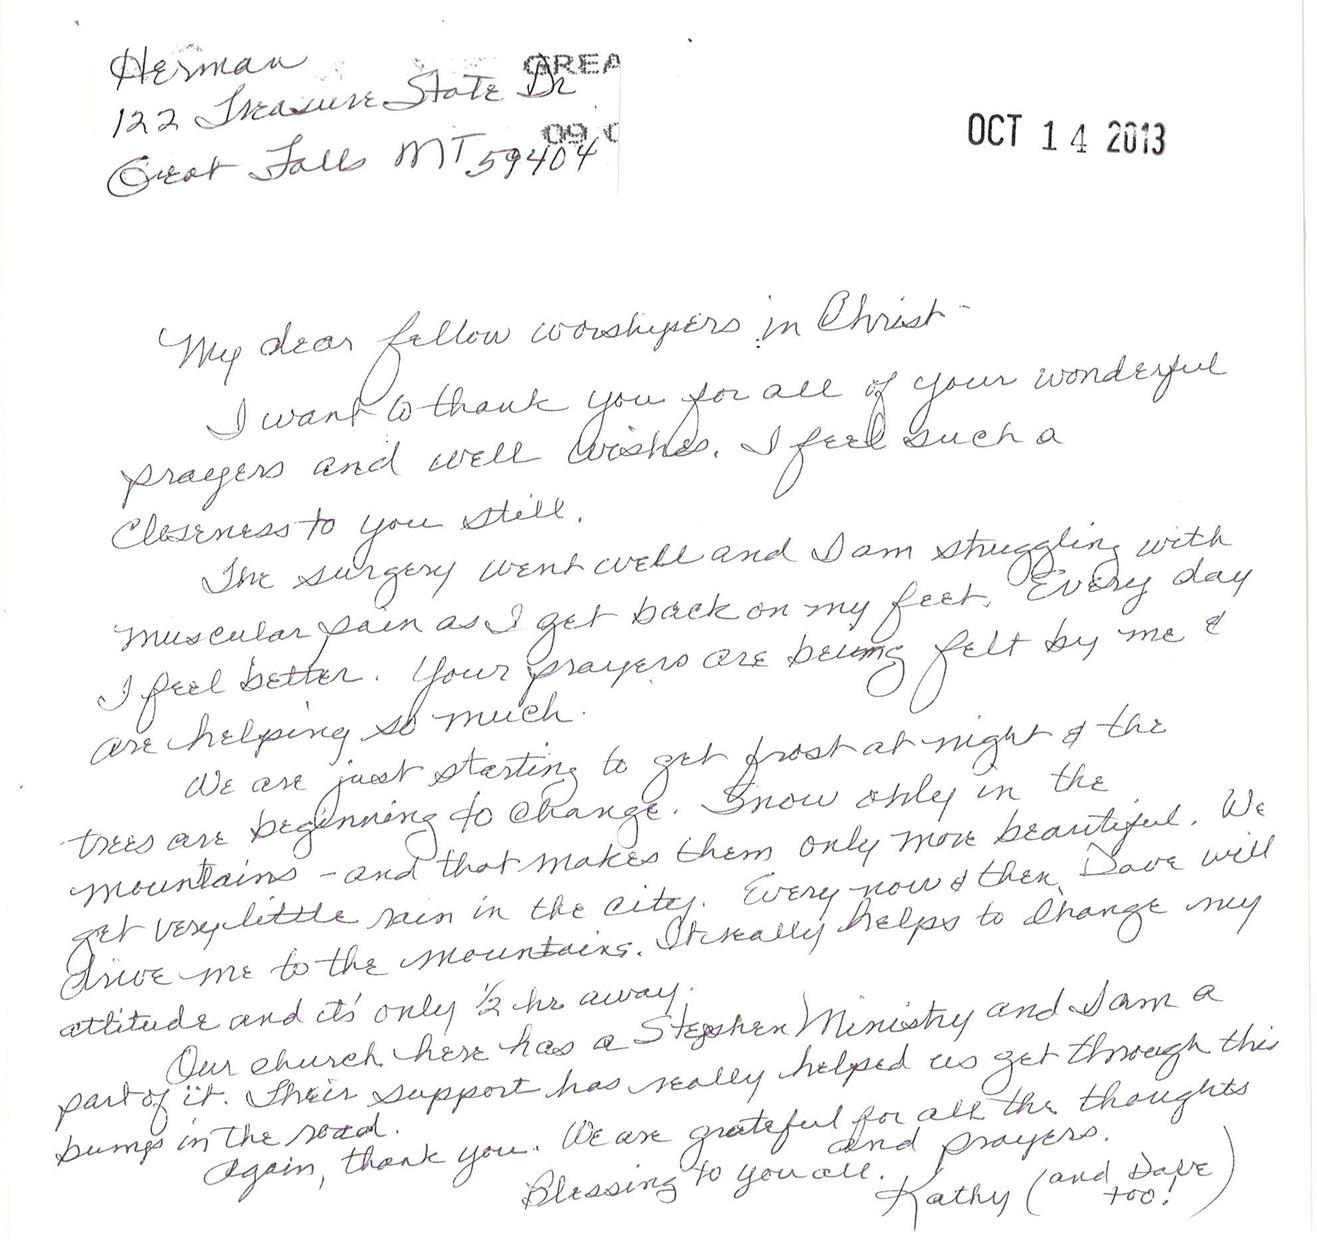 Herman
GREA
122 Treasure State Dr
09
Great Falls MT 59404
OCT 14 2013
My dear fellow worshipers in Christ -
I want to thank you for all of your wonderful
prayers and well wishes. I feel such a
closeness to you still.
The surgery went well and I am struggling with
muscular pain as I get back on my feet. Every day
I feel better. Your prayers are being felt by me &
are helping so much.
We are just starting to get frost at night & the
trees are beginning to change. Snow only in the
mountains - and that makes them only more beautiful. We
get very little rain in the city. Every now & then, Dave will
drive me to the mountains. It really helps to change my
attitude and it's only 1/2 hr away.
Our church here has a Stephen Ministry and I am a
part of it. Their support has really helped us get through this
bump in the road.
Again, thank you. We are grateful for all the thoughts
and prayers.
Blessing to you all.
Kathy (and Dave
too!)